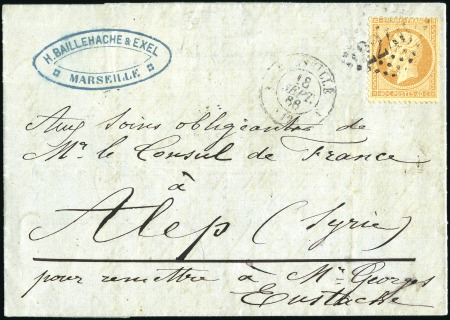 H. BAILLEHACHE & EXEL
MARSEILLE
MARSEILLE
18
SEPT.
Aux soins obligeants de
Mr. le Consul de France
à
Alep (Syrie)
pour remettre à Mr. Georges
Eustache